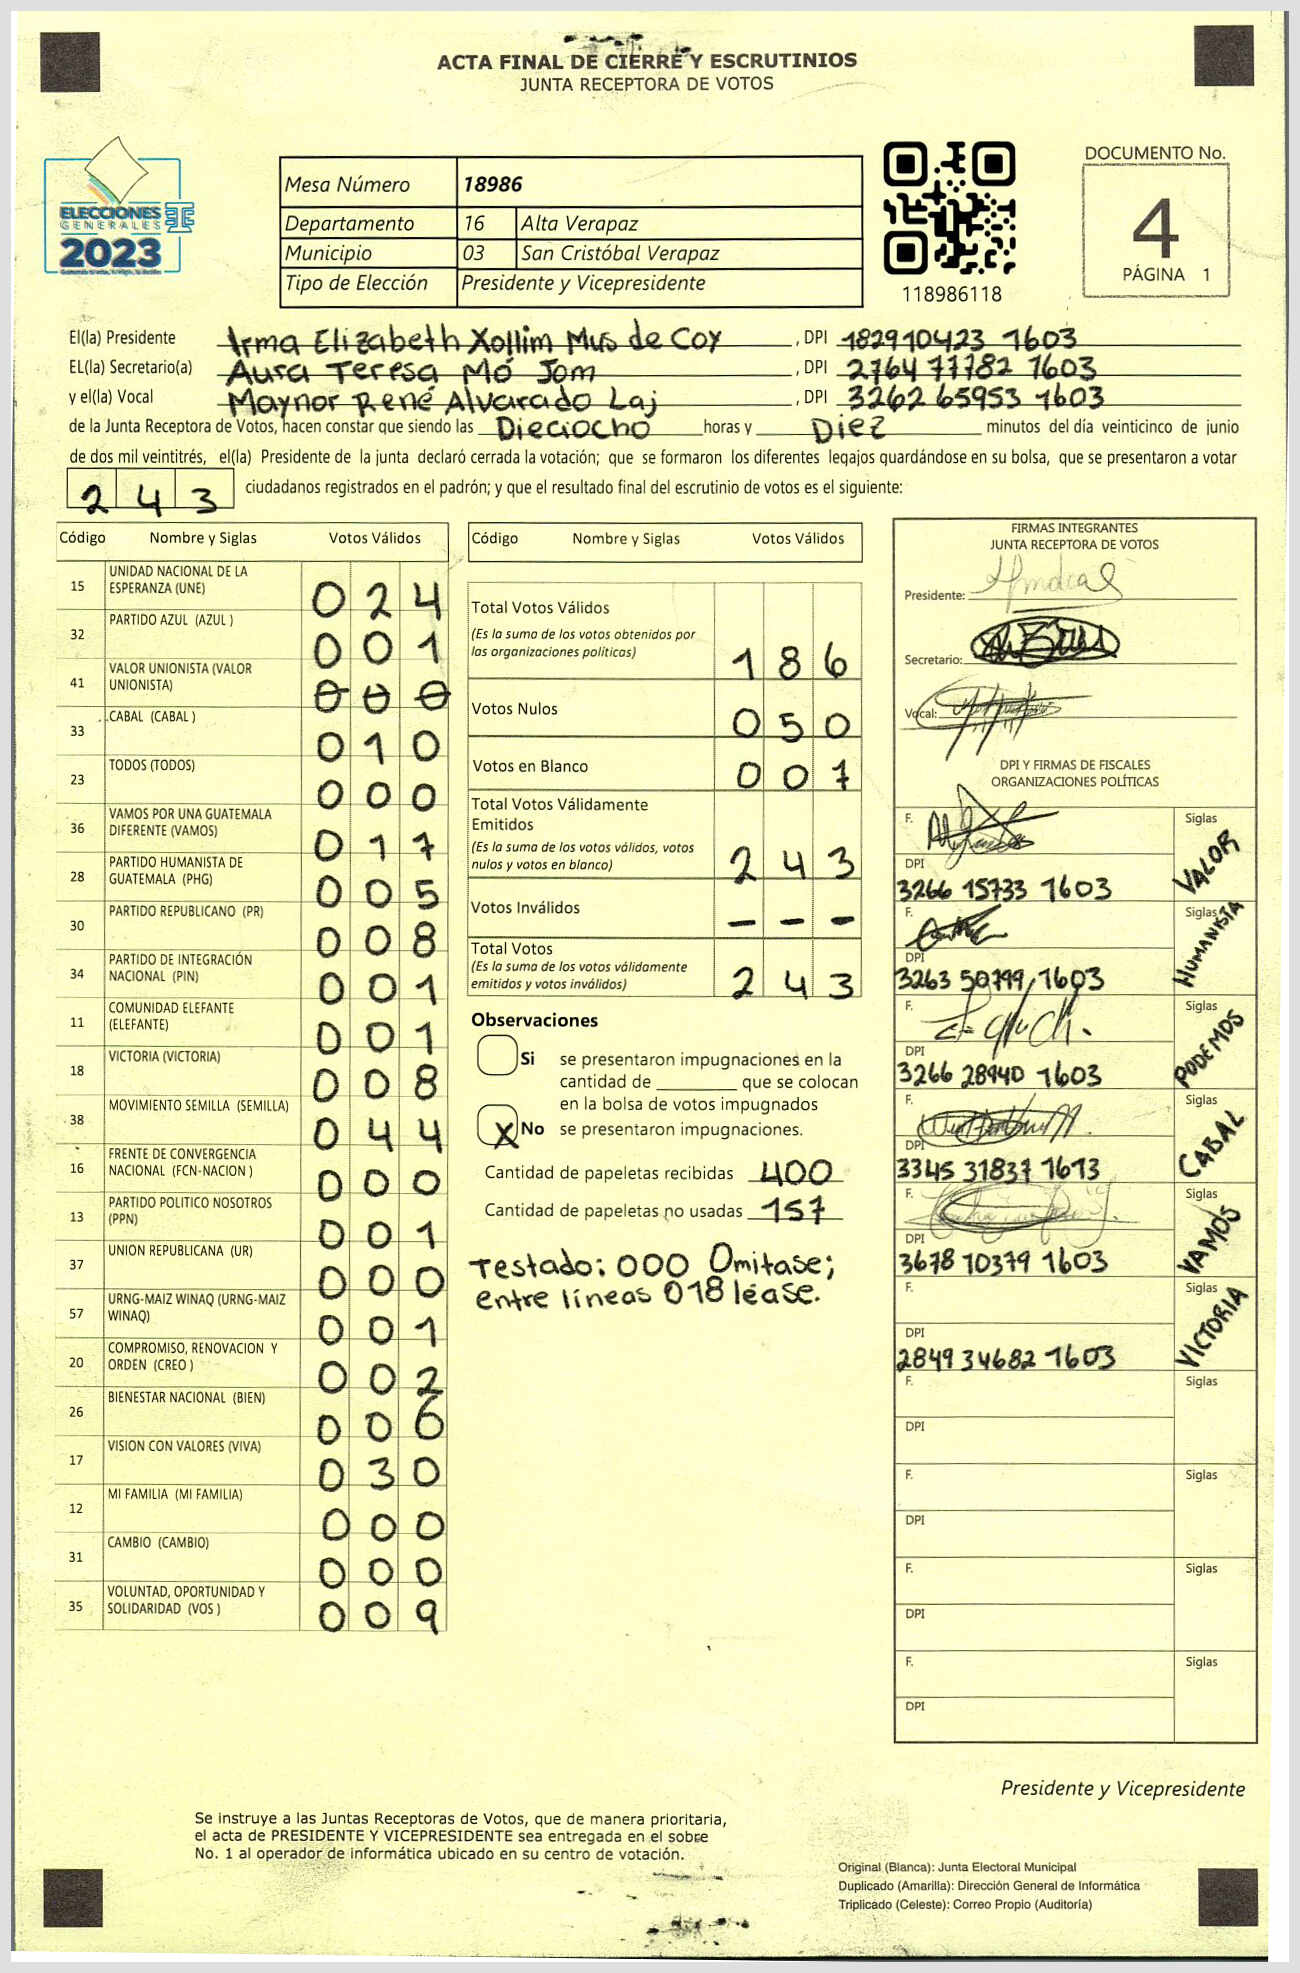 ACTA FINAL DE CIERRE Y ESCRUTINIOS
JUNTA RECEPTORA DE VOTOS
ELECCIONES
GENERALES
2023
Mesa Número 18986
Departamento 16 Alta Verapaz
Municipio 03 San Cristóbal Verapaz
Tipo de Elección Presidente y Vicepresidente
118986118
DOCUMENTO No.
4
PÁGINA 1
El(la) Presidente Irma Elizabeth Xollim Mus de Coy , DPI 182910423 1603
EL(la) Secretario(a) Aura Teresa Mó Jom , DPI 2764 77782 1603
y el(la) Vocal Maynor René Alvarado Laj , DPI 3262 65953 1603
de la Junta Receptora de Votos, hacen constar que siendo las Dieciocho horas y Diez minutos del día veinticinco de junio
de dos mil veintitrés, el(la) Presidente de la junta declaró cerrada la votación; que se formaron los diferentes legajos guardándose en su bolsa, que se presentaron a votar
243 ciudadanos registrados en el padrón; y que el resultado final del escrutinio de votos es el siguiente:
Código Nombre y Siglas Votos Válidos
15 UNIDAD NACIONAL DE LA ESPERANZA (UNE) 024
32 PARTIDO AZUL (AZUL ) 001
41 VALOR UNIONISTA (VALOR UNIONISTA) 000
33 CABAL (CABAL ) 010
23 TODOS (TODOS) 000
36 VAMOS POR UNA GUATEMALA DIFERENTE (VAMOS) 017
28 PARTIDO HUMANISTA DE GUATEMALA (PHG) 005
30 PARTIDO REPUBLICANO (PR) 008
34 PARTIDO DE INTEGRACIÓN NACIONAL (PIN) 001
11 COMUNIDAD ELEFANTE (ELEFANTE) 001
18 VICTORIA (VICTORIA) 008
38 MOVIMIENTO SEMILLA (SEMILLA) 044
16 FRENTE DE CONVERGENCIA NACIONAL (FCN-NACION ) 000
13 PARTIDO POLITICO NOSOTROS (PPN) 001
37 UNION REPUBLICANA (UR) 000
57 URNG-MAIZ WINAQ (URNG-MAIZ WINAQ) 001
20 COMPROMISO, RENOVACION Y ORDEN (CREO ) 002
26 BIENESTAR NACIONAL (BIEN) 006
17 VISION CON VALORES (VIVA) 030
12 MI FAMILIA (MI FAMILIA) 000
31 CAMBIO (CAMBIO) 000
35 VOLUNTAD, OPORTUNIDAD Y SOLIDARIDAD (VOS ) 009
Código Nombre y Siglas Votos Válidos
Total Votos Válidos
(Es la suma de los votos obtenidos por
las organizaciones políticas) 186
Votos Nulos 050
Votos en Blanco 007
Total Votos Válidamente
Emitidos
(Es la suma de los votos válidos, votos
nulos y votos en blanco) 243
Votos Inválidos - - -
Total Votos
(Es la suma de los votos válidamente
emitidos y votos inválidos) 243
Observaciones
Si se presentaron impugnaciones en la
cantidad de ________ que se colocan
en la bolsa de votos impugnados
X No se presentaron impugnaciones.
Cantidad de papeletas recibidas 400
Cantidad de papeletas no usadas 157
Testado: 000 Omitase;
entre líneas 018 léase.
FIRMAS INTEGRANTES
JUNTA RECEPTORA DE VOTOS
Presidente:
Secretario:
Vocal:
DPI Y FIRMAS DE FISCALES
ORGANIZACIONES POLÍTICAS
F. Siglas VALOR
DPI
3266 15733 1603
F. Siglas HUMANISTA
DPI
3263 50799 1603
F. Siglas PODEMOS
DPI
3266 28940 1603
F. Siglas CABAL
DPI
3345 31837 1613
F. Siglas VAMOS
DPI
3678 10379 1603
F. Siglas VICTORIA
DPI
2849 34682 1603
F. Siglas
DPI
F. Siglas
DPI
F. Siglas
DPI
F. Siglas
DPI
Presidente y Vicepresidente
Se instruye a las Juntas Receptoras de Votos, que de manera prioritaria,
el acta de PRESIDENTE Y VICEPRESIDENTE sea entregada en el sobre
No. 1 al operador de informática ubicado en su centro de votación.
Original (Blanca): Junta Electoral Municipal
Duplicado (Amarilla): Dirección General de Informática
Triplicado (Celeste): Correo Propio (Auditoría)